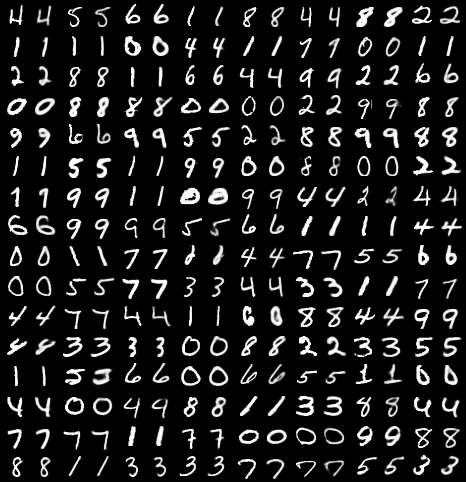 4 4 5 5 6 6 1 1 8 8 4 4 8 8 2 2
1 1 1 1 0 0 4 4 1 1 7 7 0 0 1 1
2 2 8 8 1 1 6 6 4 4 9 9 2 2 6 6
0 0 8 8 8 8 0 0 0 0 2 2 9 9 8 8
9 9 6 6 9 9 5 5 2 2 8 8 9 9 8 8
1 1 5 5 1 1 9 9 0 0 8 8 0 0 2 2
1 1 9 9 1 1 0 0 9 9 4 4 2 2 4 4
6 6 9 9 9 9 5 5 6 6 1 1 1 1 4 4
0 0 1 1 7 7 4 4 7 7 5 5 6 6
0 0 5 5 7 7 3 3 4 4 3 3 1 1 7 7
4 4 7 7 4 4 1 1 6 8 8 4 4 9 9
3 3 3 3 0 0 8 8 2 2 3 3 5 5
1 1 5 3 6 6 0 0 6 6 5 5 1 1 0 0
4 4 0 0 4 9 8 8 1 1 3 3 8 8 4 4
7 7 7 7 1 1 7 7 0 0 0 0 9 9 8 8
8 8 1 1 3 3 3 3 7 7 7 7 5 5 3 3